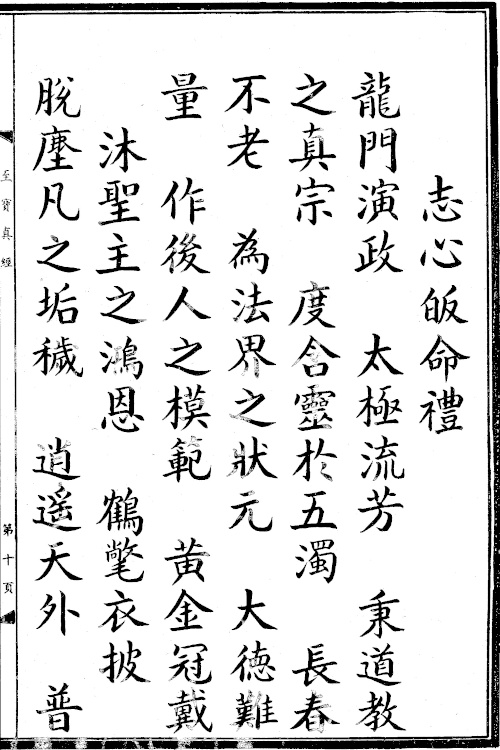 志心皈命禮
龍門演政　太極流芳　秉道教
之真宗　度含靈於五濁　長春
不老　為法界之狀元　大德難
量　作後人之模範　黃金冠戴
沐聖主之鴻恩　鶴氅衣披
脫塵凡之垢穢　逍遥天外　普
至寶真經
第十頁